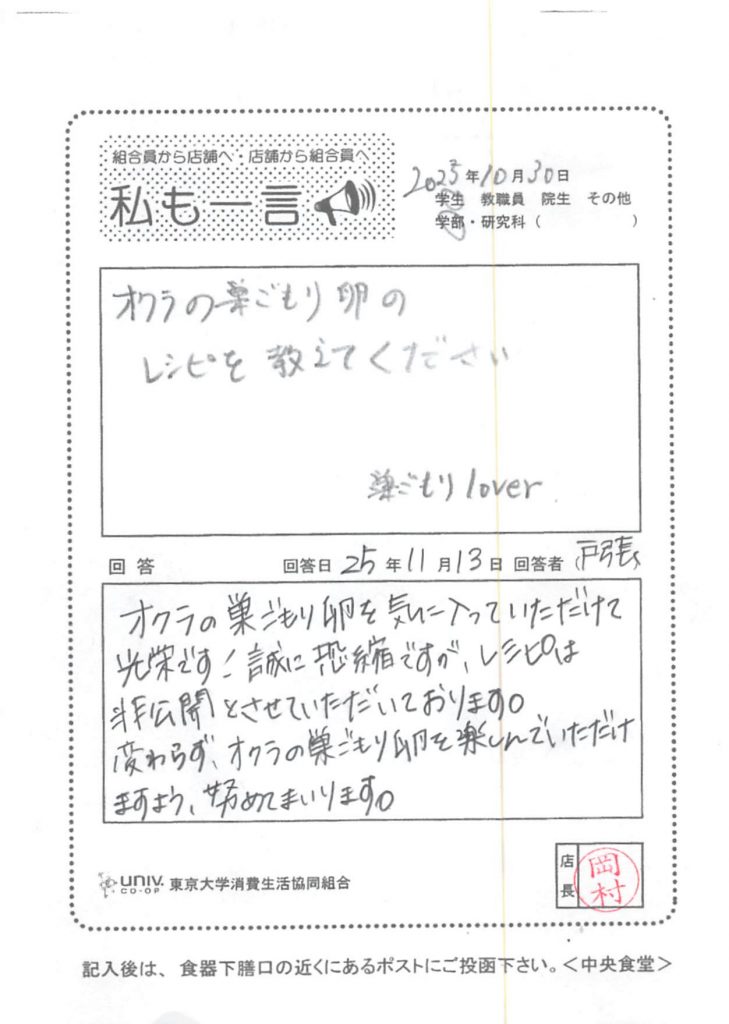 組合員から店舗へ・店舗から組合員へ
私も一言
2025年10月30日
学生 教職員 院生 その他
学部・研究科（ ）
オクラの巣ごもり卵の
レシピを教えてください
巣ごもりlover
回答 回答日 25年11月13日 回答者（戸張
オクラの巣ごもり卵を気に入っていただけて
光栄です！誠に恐縮ですが、レシピは
非公開とさせていただいております。
変わらず、オクラの巣ごもり卵を楽しんでいただけ
ますよう、努めてまいります。
UNIV. CO-OP 東京大学消費生活協同組合
店長 岡村
記入後は、食器下膳口の近くにあるポストにご投函下さい。＜中央食堂＞